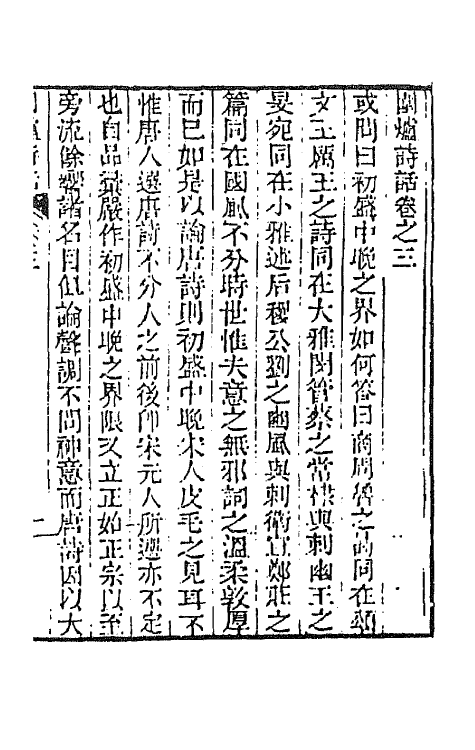 圍爐詩話卷之三
或問曰初盛中晚之界如何答曰商周魯之詩同在頌
文王厲王之詩同在大雅閔管蔡之常棣與刺幽王之
旻宛同在小雅述后稷公劉之豳風與刺衛宣鄭莊之
篇同在國風不分時世惟夫意之無邪詞之溫柔敦厚
而已如是以論唐詩則初盛中晚宋人皮毛之見耳不
惟唐人選唐詩不分人之前後卽宋元人所選亦不定
也自品彙嚴作初盛中晚之界限又立正始正宗以至
旁流餘響諸名目但論聲調不問神意而唐詩因以大